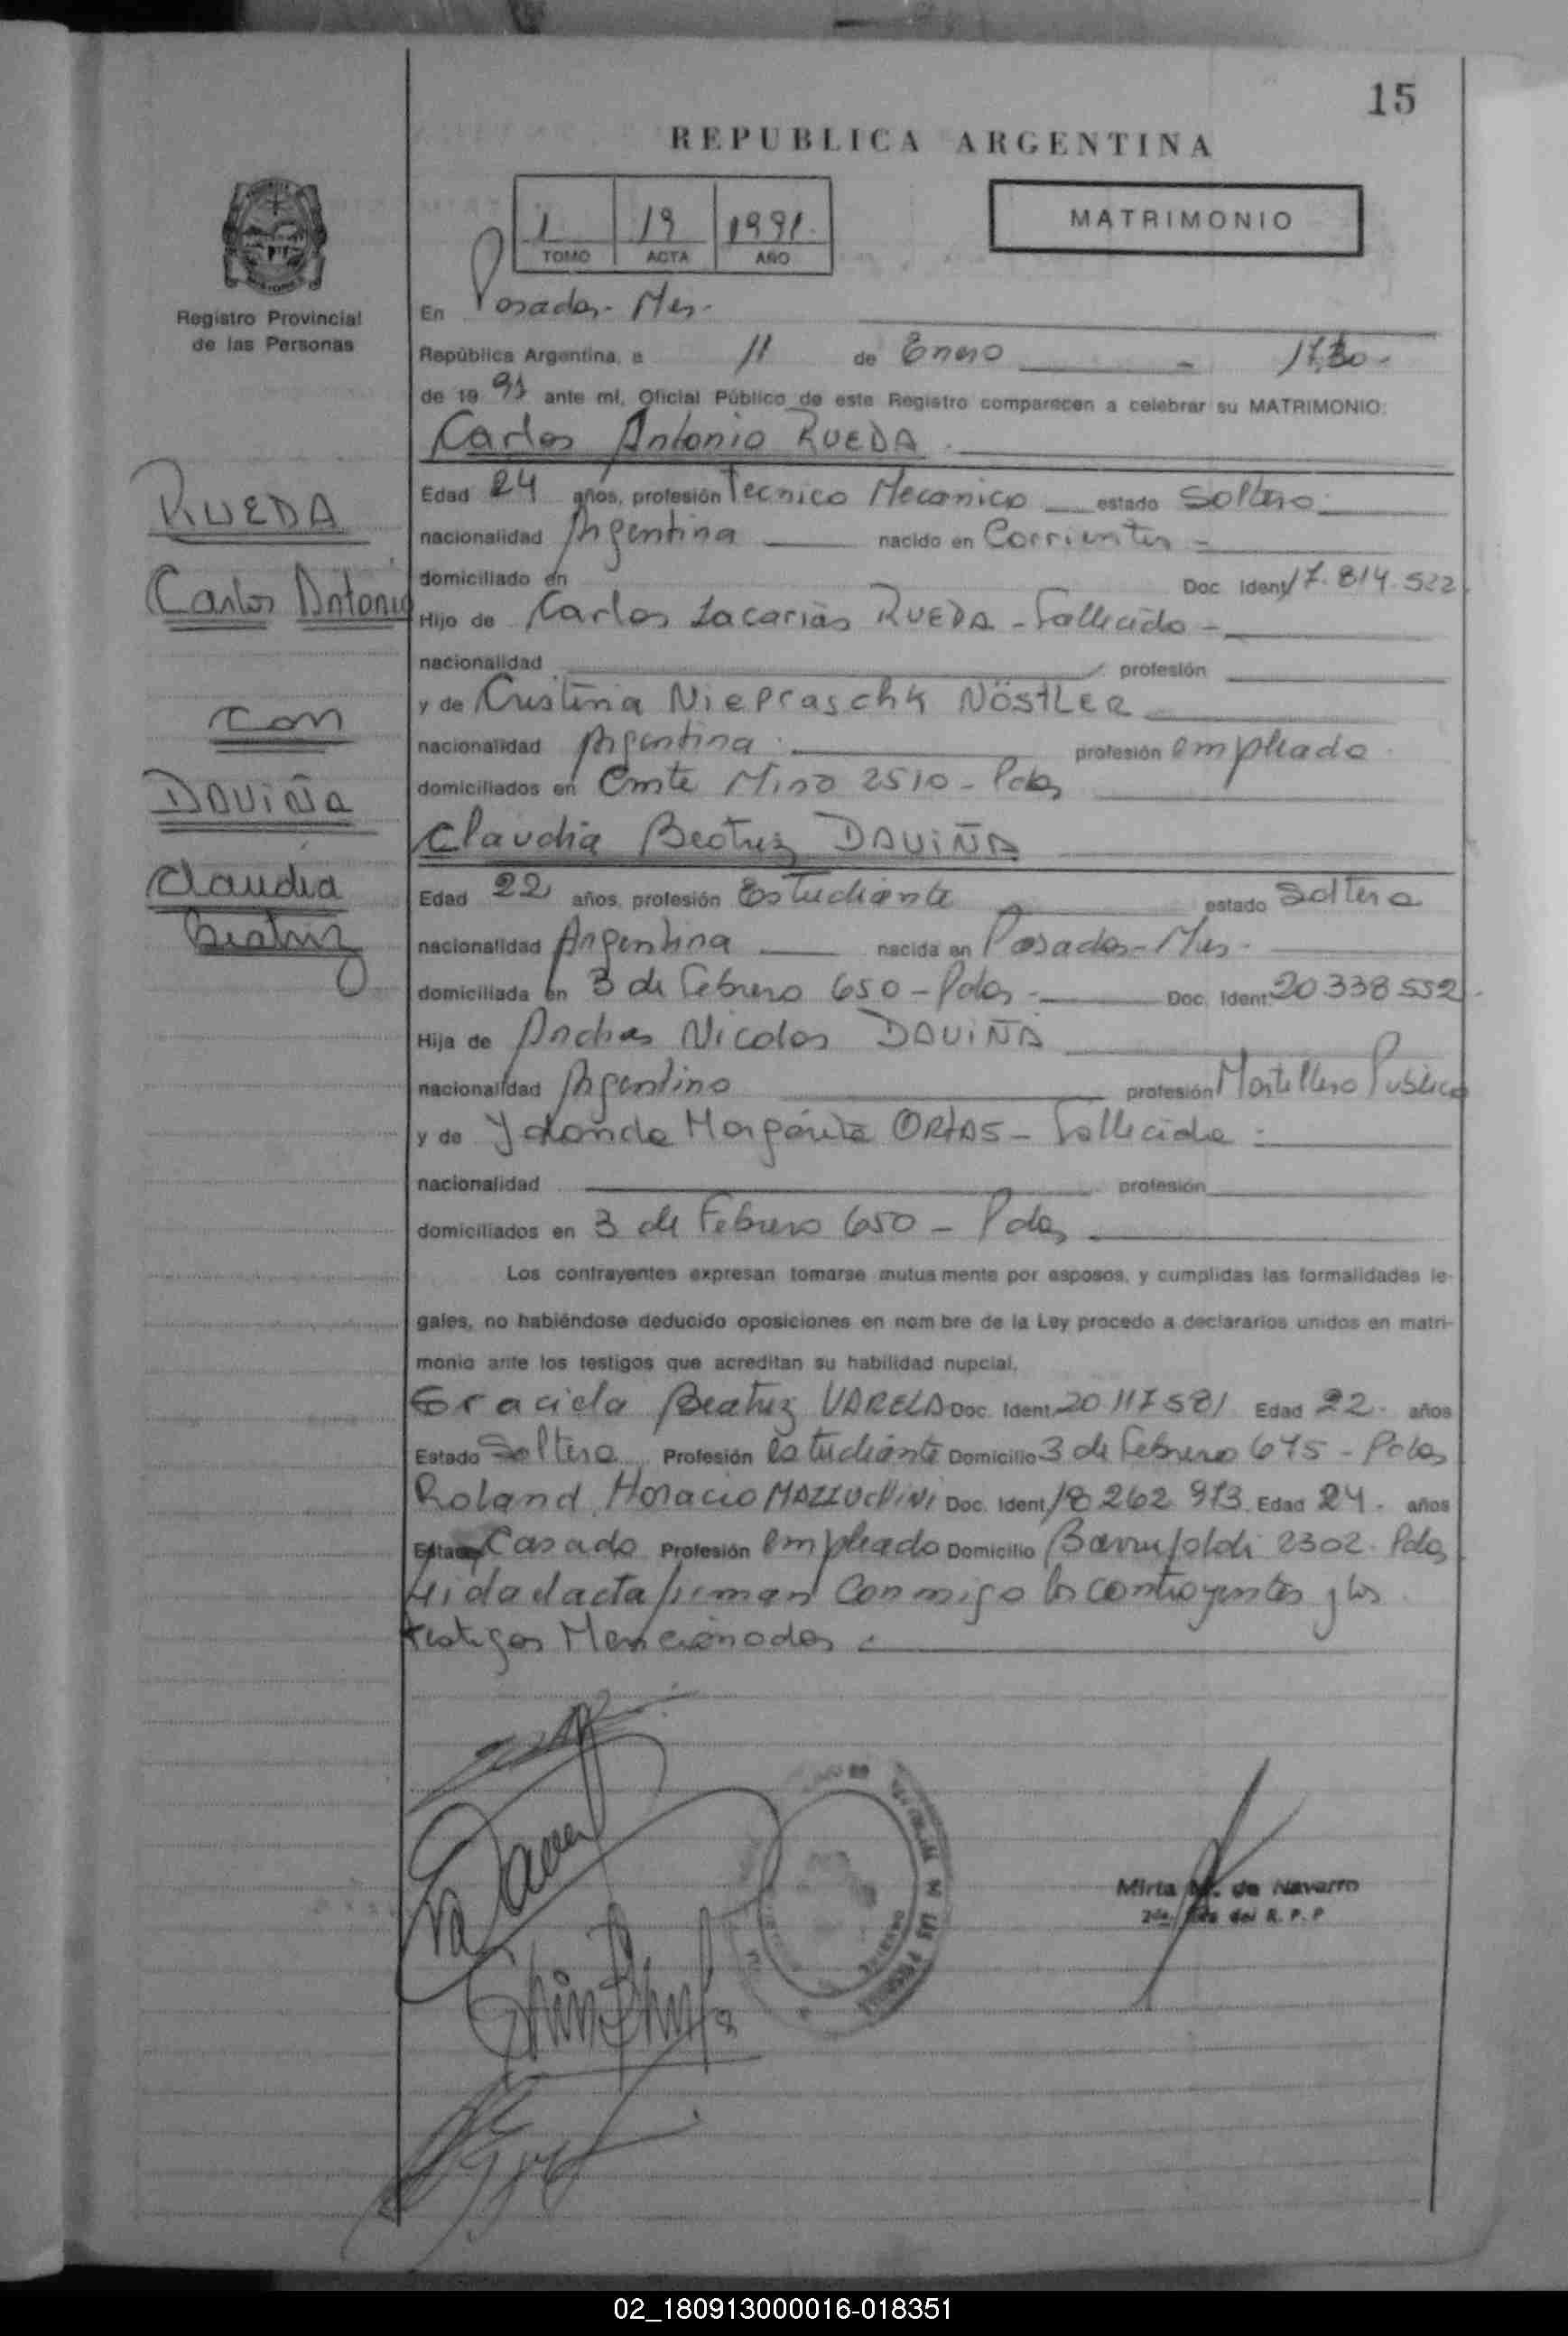 15
REPUBLICA ARGENTINA
1 19 1991.
TOMO ACTA AÑO
MATRIMONIO
Registro Provincial
de las Personas
En Posadas - Mes.-
República Argentina, a 11 de Enero - 17,30.-
de 1991 ante mí, Oficial Público de este Registro comparecen a celebrar su MATRIMONIO:
Carlos Antonio RUEDA.
RUEDA
Carlos Antonio
con
DAVIÑA
Claudia
Beatriz
Edad 24 años, profesión Tecnico Mecanico estado Soltero
nacionalidad Argentina nacido en Corrientes -
domiciliado en Doc. Ident 17.814.522
Hijo de Carlos Zacarias RUEDA - Fallecido -
nacionalidad profesión
y de Cristina Niepraschk NÖSTLER
nacionalidad Argentina profesión empleada
domiciliados en Cmte Miño 2510 - Pdas
Claudia Beatriz DAVIÑA
Edad 22 años, profesión Estudiante estado Soltera
nacionalidad Argentina nacida en Posadas - Mes.-
domiciliada en 3 de Febrero 650 - Pdas - Doc. Ident 20338552.
Hija de Andres Nicolas DAVIÑA
nacionalidad Argentino profesión Martillero Publico
y de Yolanda Margarita - Fallecida -
nacionalidad profesión
domiciliados en 3 de Febrero 650 - Pdas
Los contrayentes expresan tomarse mutua mente por esposos, y cumplidas las formalidades le-
gales, no habiéndose deducido oposiciones en nom bre de la Ley procedo a declararlos unidos en matri-
monio ante los testigos que acreditan su habilidad nupcial.
Graciela Beatriz VARELA Doc. Ident 20117581 Edad 22. años
Estado Soltera Profesión estudiante Domicilio 3 de Febrero 675 - Pdas
Roland Horacio MAZZUCHINI Doc. Ident 18262973 Edad 24. años
Estado Casado Profesión empleado Domicilio 2302. Pdas
Leida el acta firman conmigo los contrayentes y los
testigos Mencionados.
Mirta M. de Navarro
del R. P. P
02_180913000016-018351